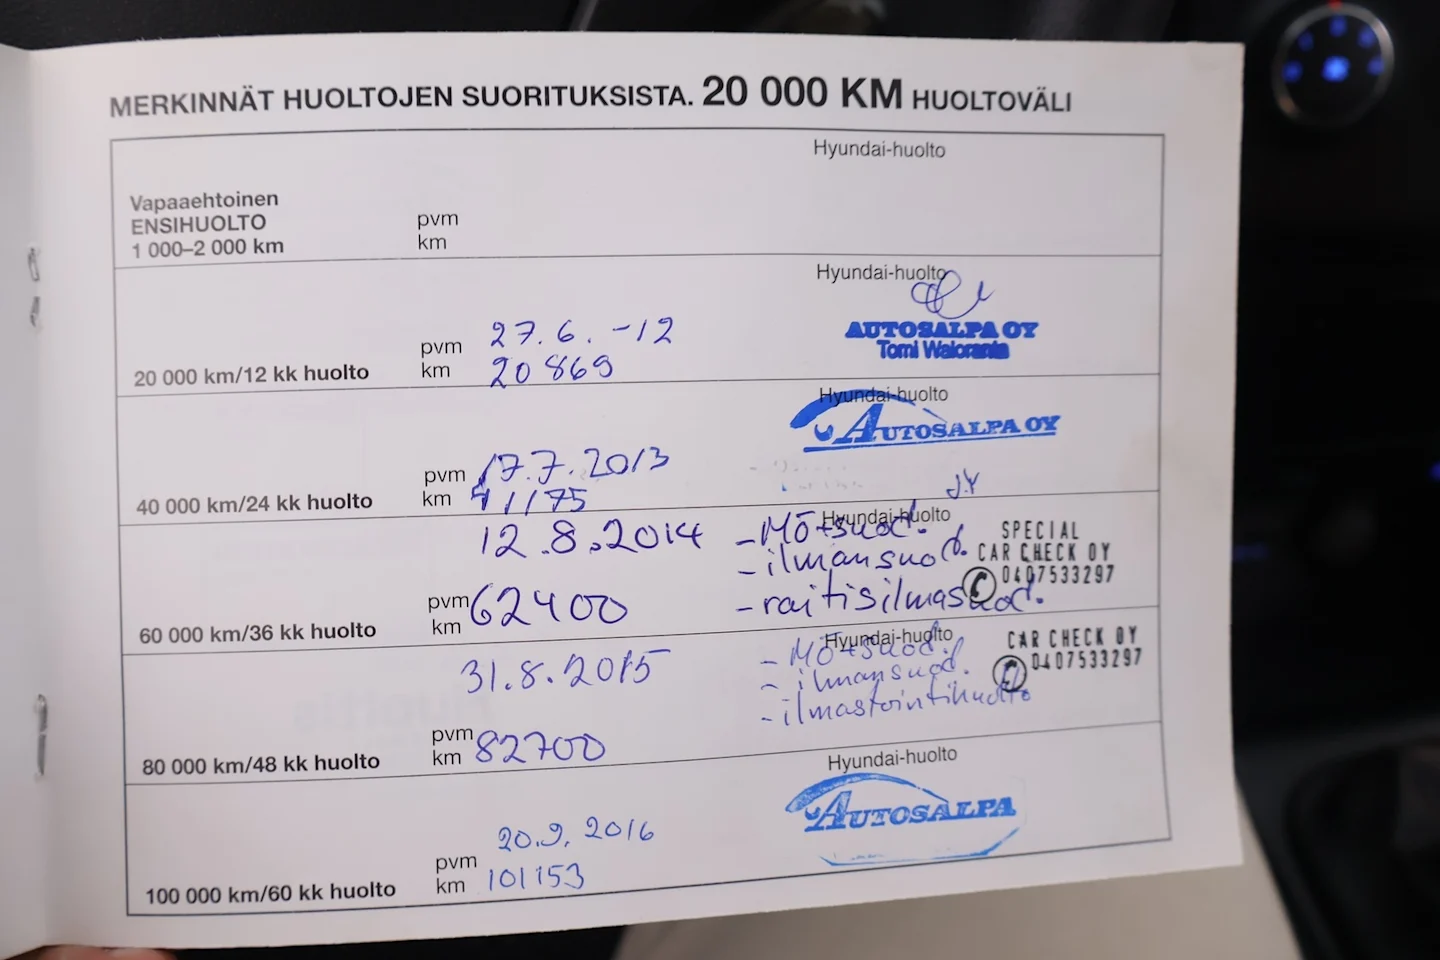 MERKINNÄT HUOLTOJEN SUORITUKSISTA. 20 000 KM HUOLTOVÄLI
Hyundai-huolto
Vapaaehtoinen
ENSIHUOLTO
1 000–2 000 km
pvm
km
Hyundai-huolto
AUTOSALPA OY
Tomi Waloranta
20 000 km/12 kk huolto
pvm 27.6. -12
km 20 869
Hyundai-huolto
AUTOSALPA OY
40 000 km/24 kk huolto
pvm 17.7.2013
km 41175
J.Y
Hyundai-huolto
12.8.2014
- Mö+suod.
- ilmansuod.
- raitisilmasuod.
SPECIAL
CAR CHECK OY
0407533297
60 000 km/36 kk huolto
pvm
km 62400
Hyundai-huolto
31.8.2015
- Mö+suod.
- ilmansuod.
- ilmastointihuolto
CAR CHECK OY
0407533297
80 000 km/48 kk huolto
pvm
km 82700
Hyundai-huolto
AUTOSALPA
100 000 km/60 kk huolto
pvm 20.9.2016
km 101153